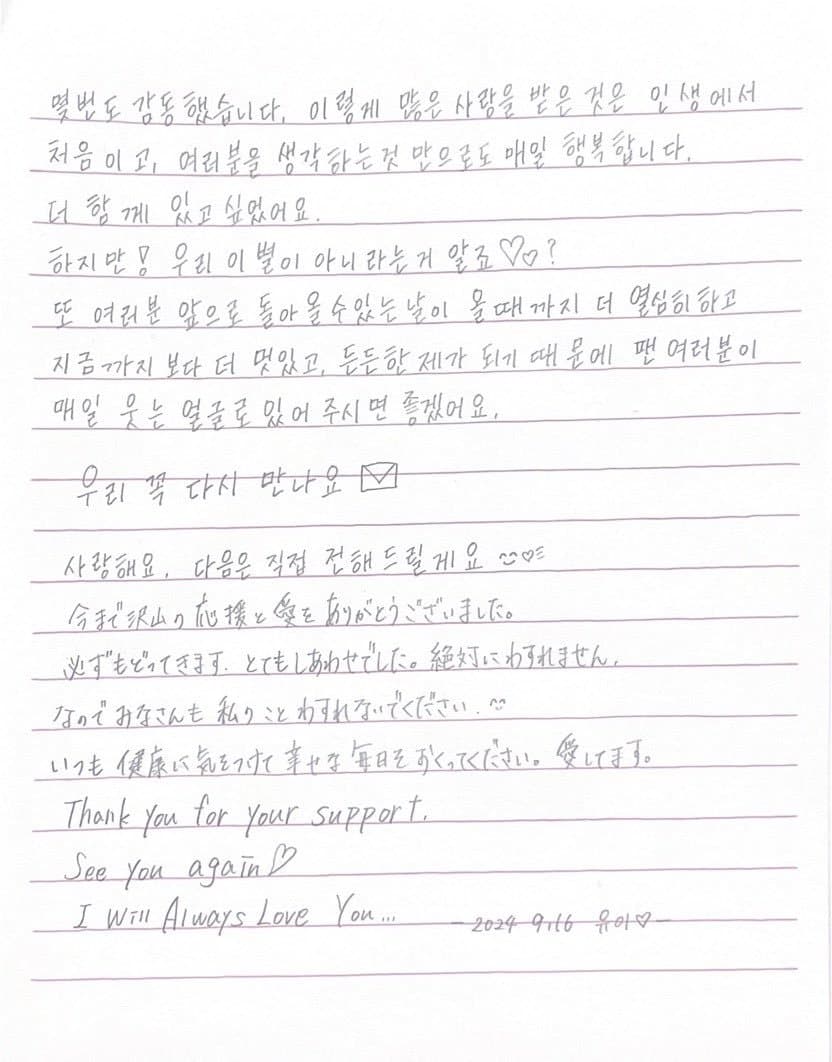 몇번도 감동했습니다. 이렇게 많은 사랑을 받은 것은 인생에서
처음이고, 여러분을 생각하는것 만으로도 매일 행복합니다.
더 함께 있고 싶었어요.
하지만! 우리 이별이 아니라는거 알죠♡♡?
또 여러분 앞으로 돌아올수있는날이 올때까지 더 열심히하고
지금까지보다 더 멋있고, 든든한 제가 되기 때문에 팬 여러분이
매일 웃는 얼글로 있어 주시면 좋겠어요.
우리 꼭 다시 만나요
사랑해요. 다음은 직접 전해드릴게요
今まで沢山の応援と愛をありがとうございました。
必ずもどってきます. とてもしあわせでした。絶対にわすれません.
なのでみなさんも 私のこと わすれないでください.
いつも 健康に気をつけて 幸せな 毎日をおくってください。愛してます。
Thank you for your support.
See you again♡
I Will Always Love You...
-2024 9.16 유이♡-